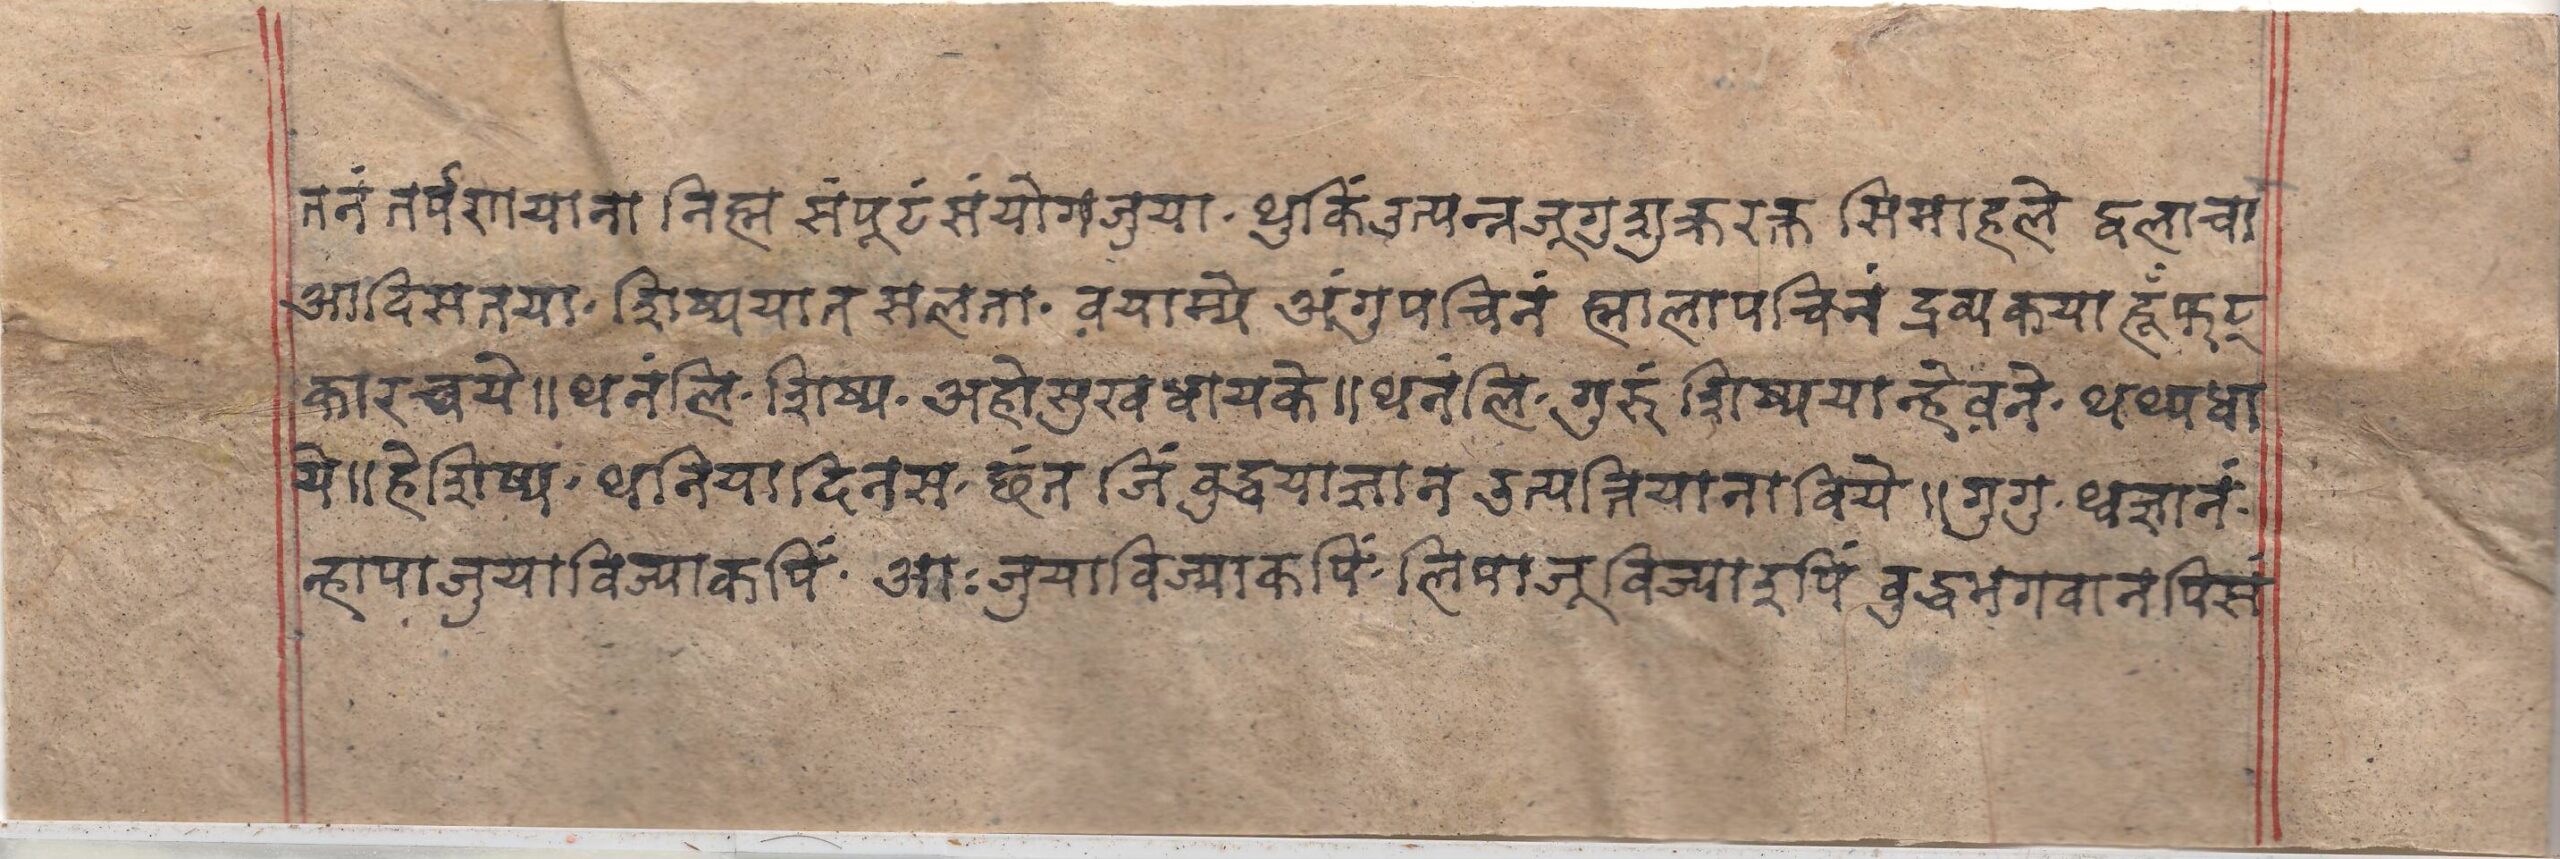 तनं तर्पणयाना निह्म संपूटंसंयोगजुया· थुकिंउत्पन्नजूगुशुक्ररक्त सिमाहले द्वलाचा
आदिसतया· शिष्ययात सलता· वयाम्ये अंगुपचिनं ह्मालापचिनं द्रव्यकया हूँफट्
कारच्वये॥थनंलि· शिष्य· अहोसुखधायके॥थनंलि· गुरुं शिष्ययान्हेवने· थथ्यधा
ये॥हेशिष्य· थनियादिनस· छंत जिं बुद्धयाज्ञान उत्पत्तियानाविये॥गुगु· थ्वज्ञानं·
न्हापाजुयाविज्याकपिं· आःजुयाविज्याकपिं· लिपाजूविज्याइपिं बुद्धभगवानपिसं